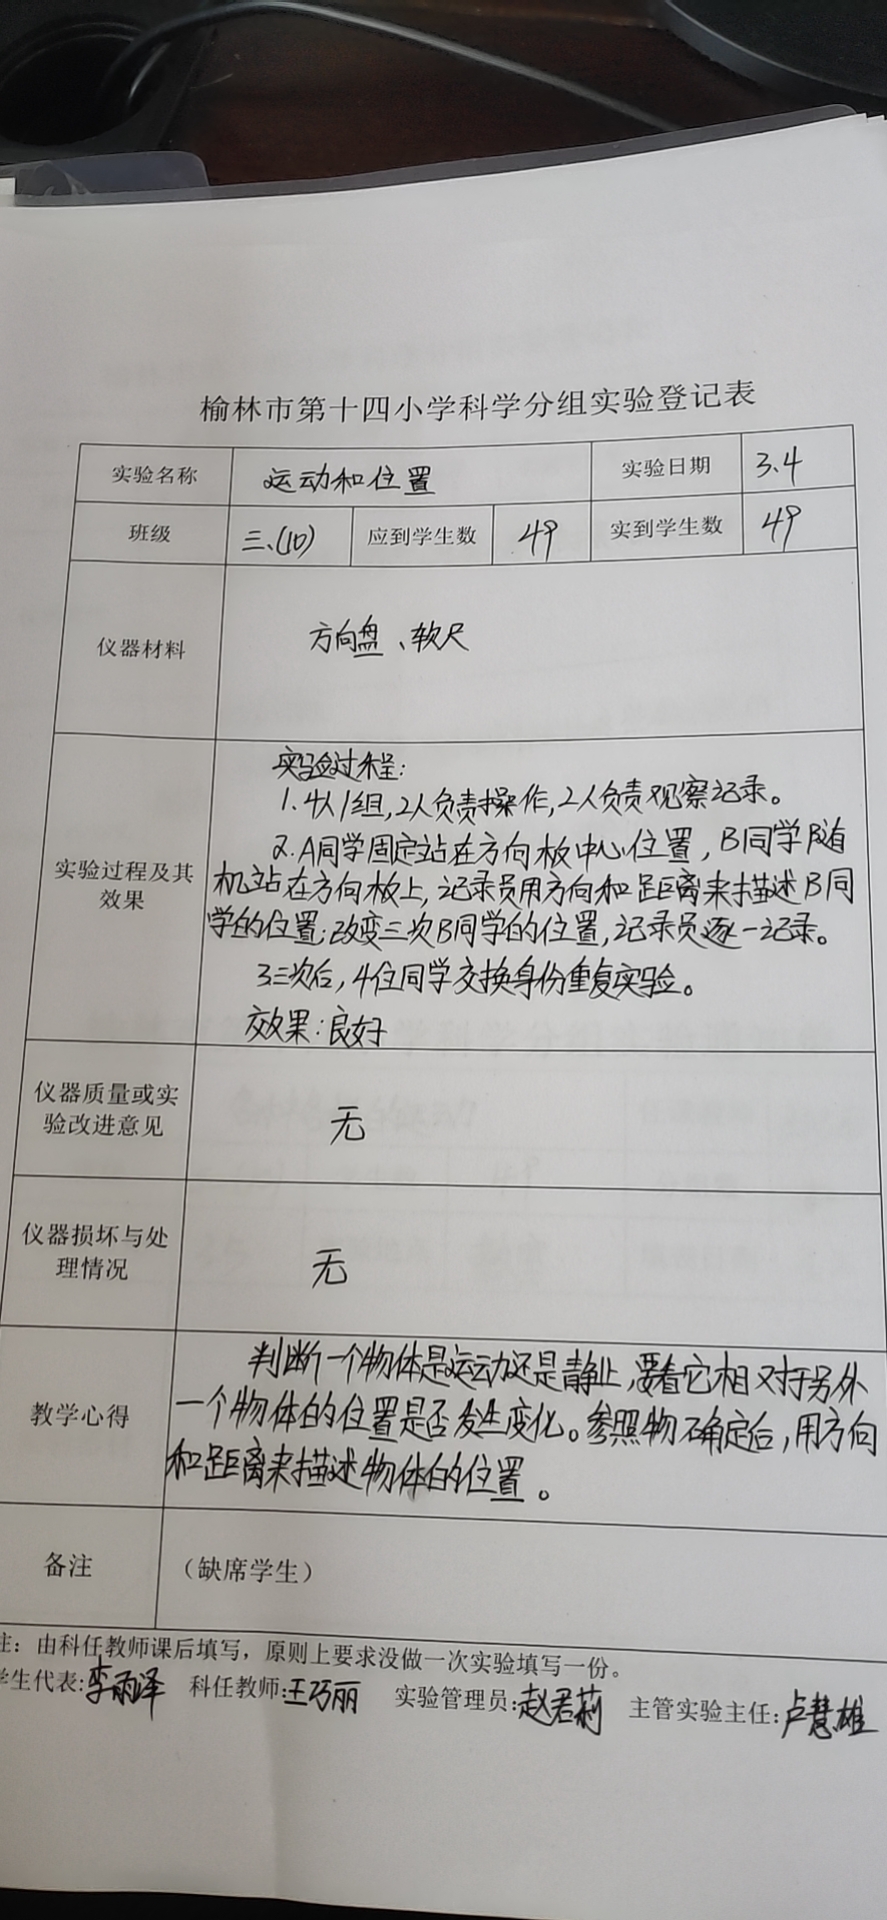 榆林市第十四小学科学分组实验登记表
实验名称 运动和位置 实验日期 3.4
班级 三.(10) 应到学生数 49 实到学生数 49
仪器材料 方向盘、软尺
实验过程及其效果
实验过程:
1.4人1组,2人负责操作,2人负责观察记录。
2.A同学固定站在方向板中心位置,B同学随
机站在方向板上,记录员用方向和距离来描述B同
学的位置;改变三次B同学的位置,记录员逐一记录。
3三次后,4位同学交换身份重复实验。
效果:良好
仪器质量或实验改进意见 无
仪器损坏与处理情况 无
教学心得
判断一个物体是运动还是静止,要看它相对于另外
一个物体的位置是否发生变化。参照物确定后,用方向
和距离来描述物体的位置。
备注 (缺席学生)
注:由科任教师课后填写,原则上要求没做一次实验填写一份。
学生代表:李雨泽 科任教师:王巧丽 实验管理员:赵君莉 主管实验主任:卢慧雄